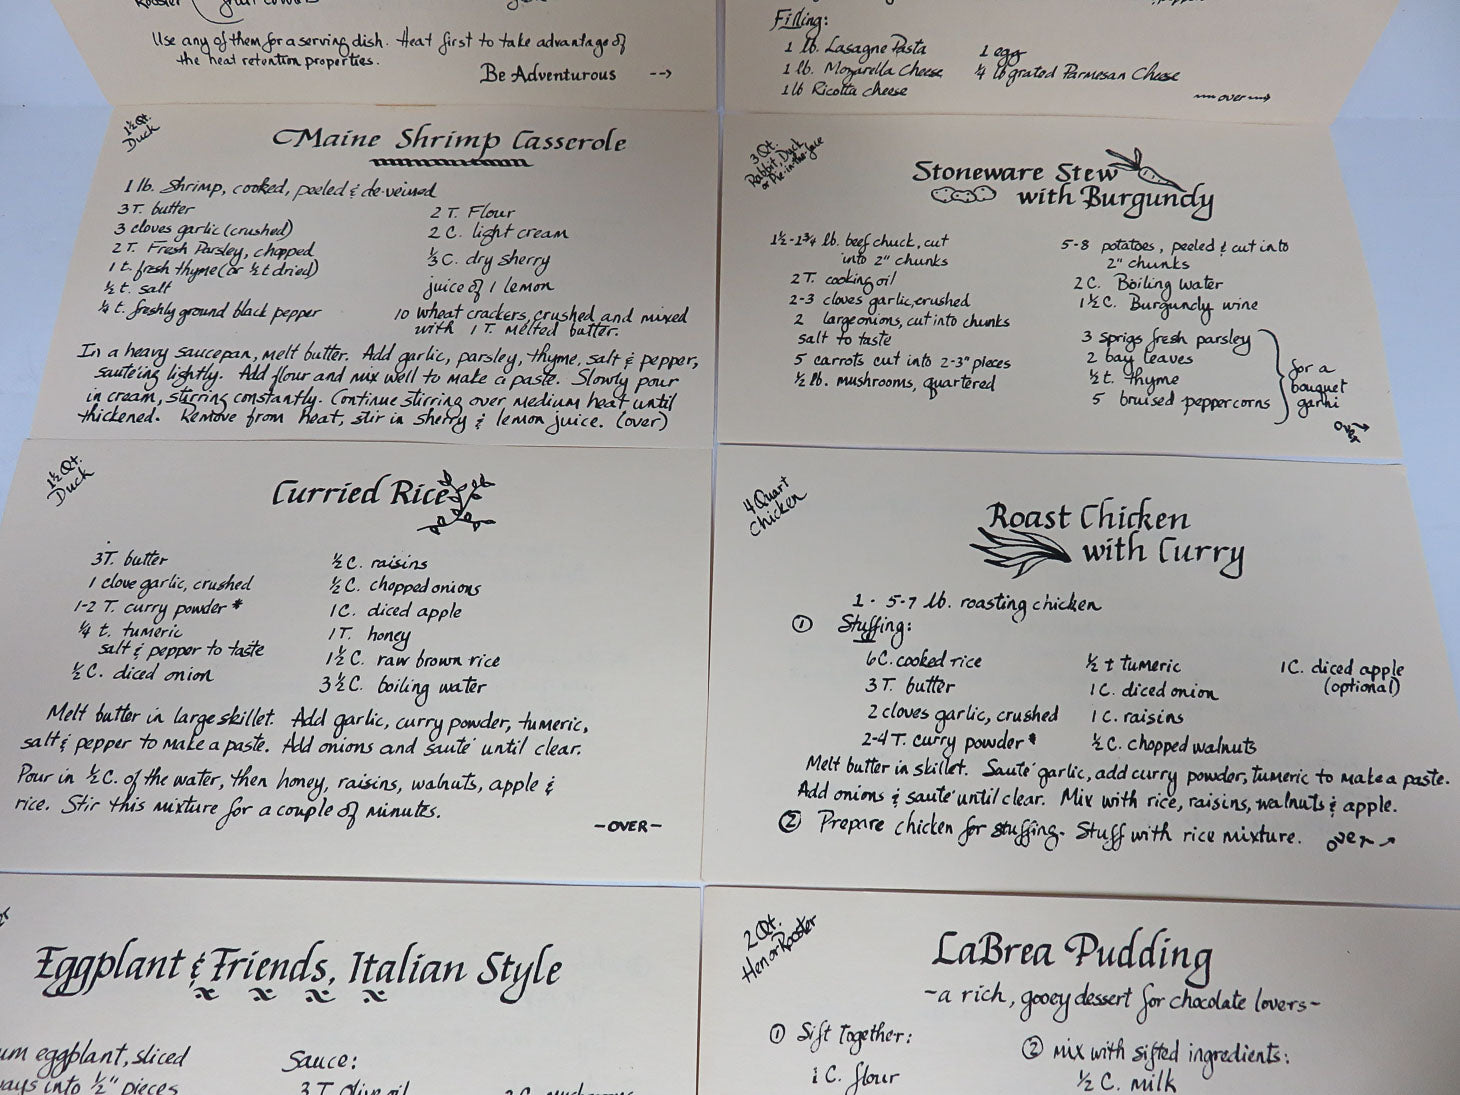 Rooster
Use any of them for a serving dish. Heat first to take advantage of
the heat retention properties.
Be Adventurous -->
Filling:
1 lb. Lasagne Pasta
1 lb. Mozarella Cheese
1 lb Ricotta cheese
1 egg
1/4 lb grated Parmesan Cheese
over
1½ Qt.
Duck
Maine Shrimp Casserole
1 lb. Shrimp, cooked, peeled & de-veined
3 T. butter
3 cloves garlic (crushed)
2 T. Fresh Parsley, chopped
1 t. fresh thyme (or ½ t dried)
½ t. salt
¼ t. freshly ground black pepper
2 T. Flour
2 C. light cream
⅓ C. dry sherry
juice of 1 lemon
10 wheat crackers, crushed and mixed
with 1 T. melted butter.
In a heavy saucepan, melt butter. Add garlic, parsley, thyme, salt & pepper,
sauté'ing lightly. Add flour and mix well to make a paste. Slowly pour
in cream, stirring constantly. Continue stirring over medium heat until
thickened. Remove from heat, stir in sherry & lemon juice. (over)
3 Qt.
Rabbit, Duck
or Pie-in-the-face
Stoneware Stew
with Burgundy
1½-1¾ lb. beef chuck, cut
into 2" chunks
2 T. cooking oil
2-3 cloves garlic, crushed
2 large onions, cut into chunks
salt to taste
5 carrots cut into 2-3" pieces
½ lb. mushrooms, quartered
5-8 potatoes, peeled & cut into
2" chunks
2 C. Boiling water
1½ C. Burgundy wine
3 sprigs fresh parsley
2 bay leaves
½ t. thyme
5 bruised peppercorns
for a
bouquet
garni
over
1½ Qt.
Duck
Curried Rice
3 T. butter
1 clove garlic, crushed
1-2 T. curry powder *
¼ t. tumeric
salt & pepper to taste
½ C. diced onion
½ C. raisins
½ C. chopped onions
1 C. diced apple
1 T. honey
1½ C. raw brown rice
3½ C. boiling water
Melt butter in large skillet. Add garlic, curry powder, tumeric,
salt & pepper to make a paste. Add onions and sauté until clear.
Pour in ½ C. of the water, then honey, raisins, walnuts, apple &
rice. Stir this mixture for a couple of minutes.
-OVER-
4 Quart
Chicken
Roast Chicken
with Curry
1 - 5-7 lb. roasting chicken
① Stuffing:
6 C. cooked rice
3 T. butter
2 cloves garlic, crushed
2-4 T. curry powder *
½ t tumeric
1 C. diced onion
1 C. raisins
½ C. chopped walnuts
1 C. diced apple
(optional)
Melt butter in skillet. Sauté garlic, add curry powder, tumeric to make a paste.
Add onions & sauté until clear. Mix with rice, raisins, walnuts & apple.
② Prepare chicken for stuffing. Stuff with rice mixture. over
Eggplant & Friends, Italian Style
eggplant, sliced
into ½" pieces
Sauce:
3 T. olive oil
2 Qt.
Hen or Rooster
LaBrea Pudding
~a rich, gooey dessert for chocolate lovers~
① Sift together:
1 C. flour
② Mix with sifted ingredients:
½ C. milk